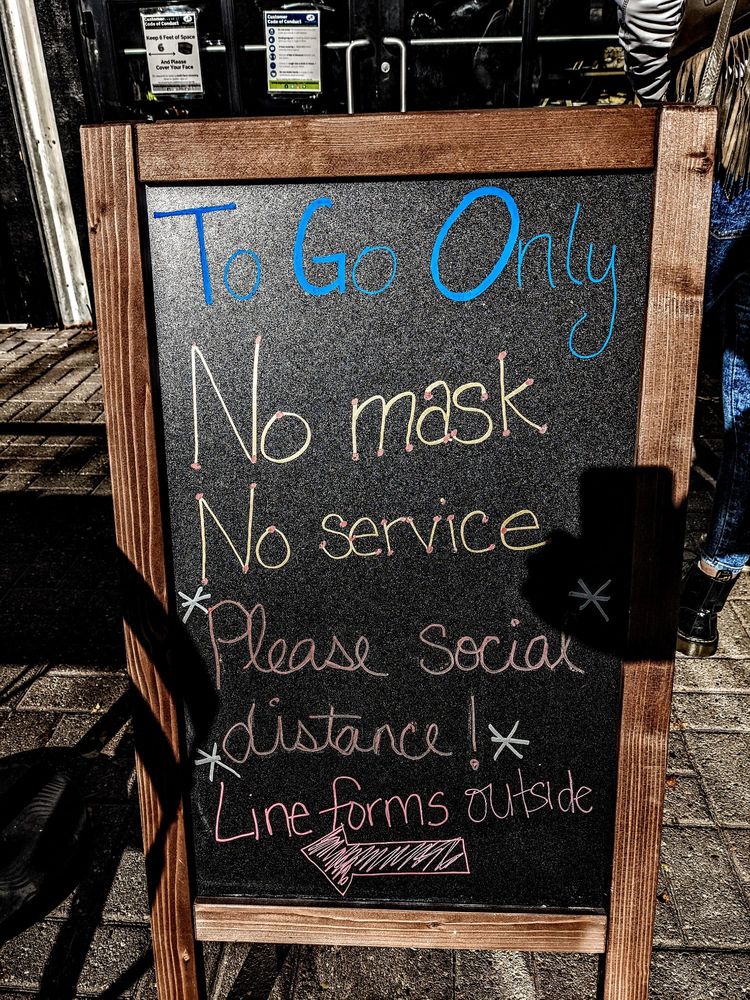 Customer
Code of Conduct
Keep 6 Feet of Space
6
And Please
Cover Your Face
Customer
Code of Conduct
To Go Only
No mask
No service
*Please Social*
*distance!*
Line forms outside